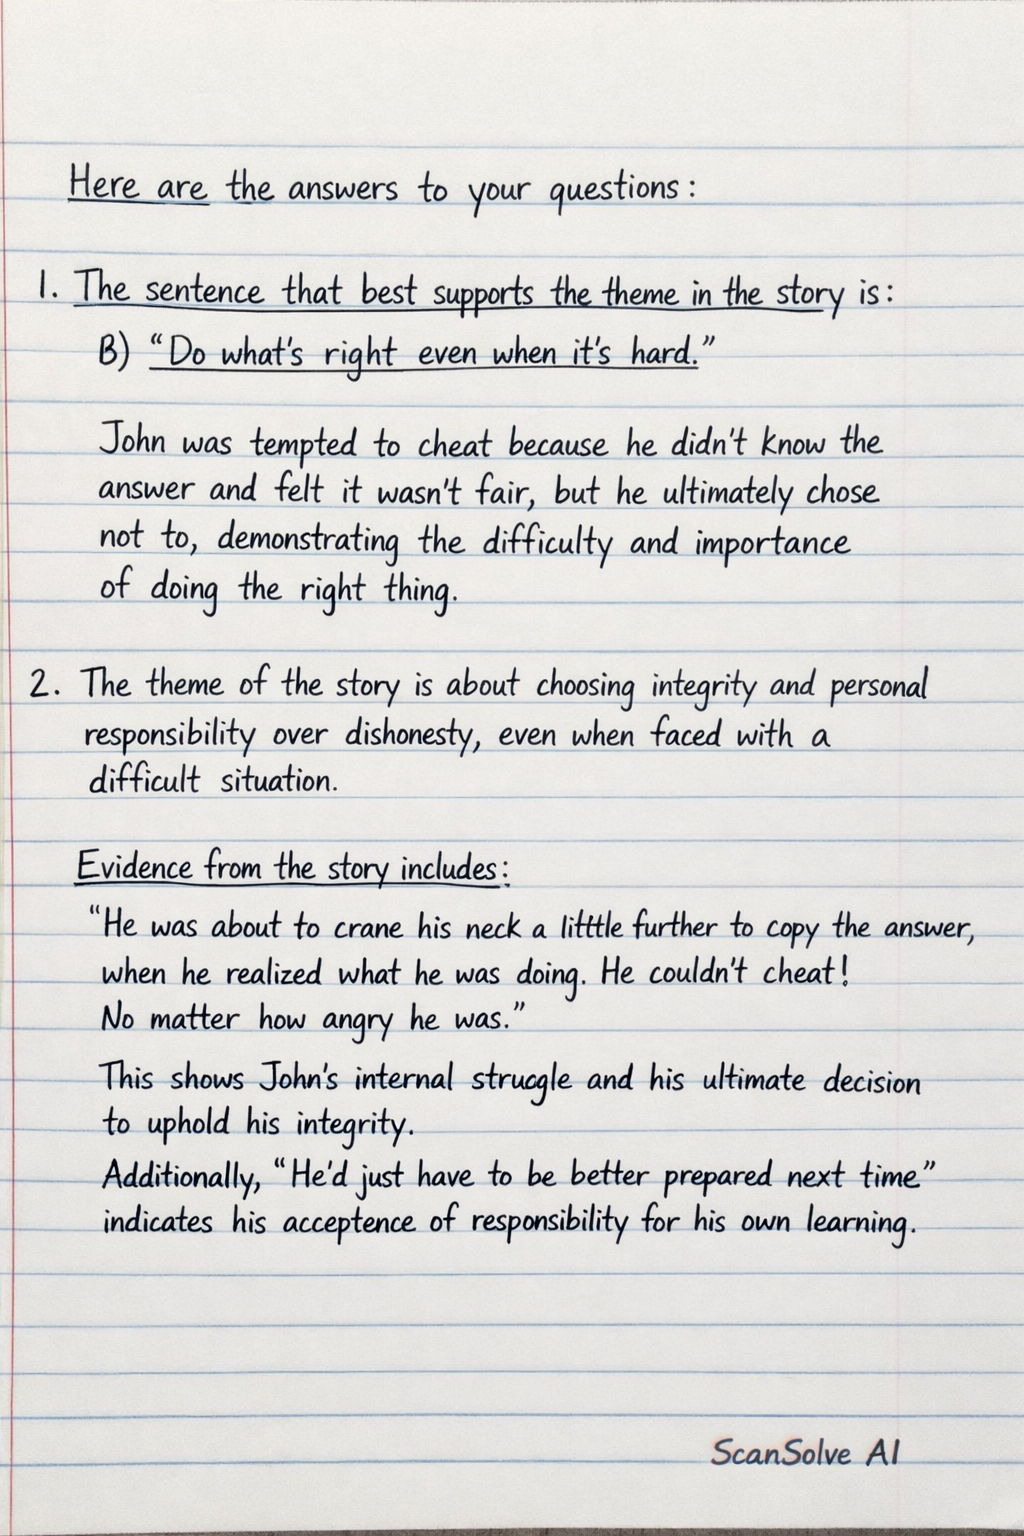 Here are the answers to your questions:
1. The sentence that best supports the theme in the story is:
B) "Do what's right even when it's hard."
John was tempted to cheat because he didn't know the
answer and felt it wasn't fair, but he ultimately chose
not to, demonstrating the difficulty and importance
of doing the right thing.
2. The theme of the story is about choosing integrity and personal
responsibility over dishonesty, even when faced with a
difficult situation.
Evidence from the story includes:
"He was about to crane his neck a litttle further to copy the answer,
when he realized what he was doing. He couldn't cheat!
No matter how angry he was."
This shows John's internal strucgle and his ultimate decision
to uphold his integrity.
Additionally, "He'd just have to be better prepared next time"
indicates his acceptence of responsibility for his own learning.
ScanSolve AI